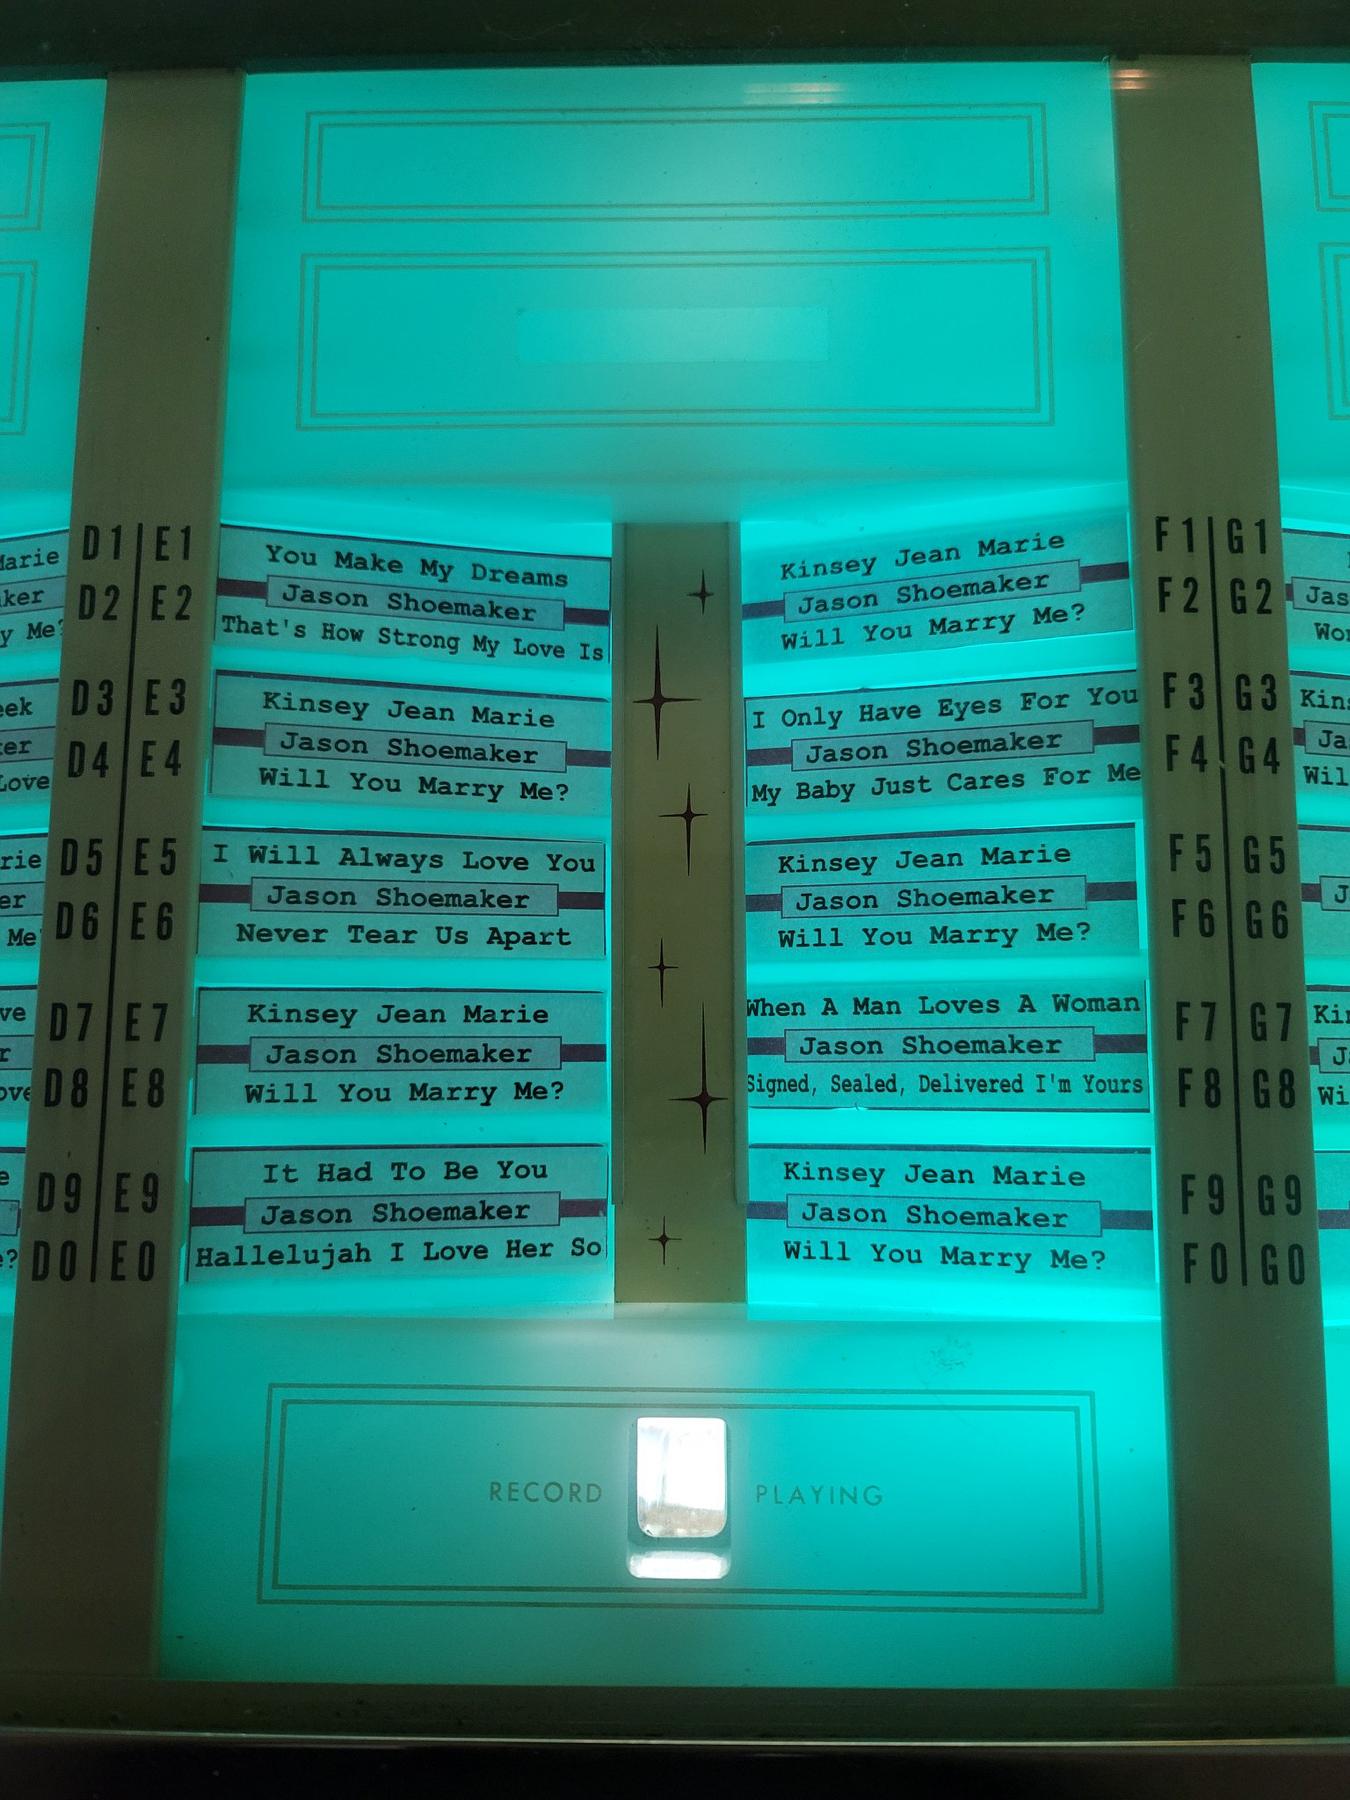 Marie
ker
y Me?
eek
er
Love
rie
er
Me
ve
r
ove
e
?
D1 E1
D2 E2
D3 E3
D4 E4
D5 E5
D6 E6
D7 E7
D8 E8
D9 E9
D0 E0
You Make My Dreams
Jason Shoemaker
That's How Strong My Love Is
Kinsey Jean Marie
Jason Shoemaker
Will You Marry Me?
I Will Always Love You
Jason Shoemaker
Never Tear Us Apart
Kinsey Jean Marie
Jason Shoemaker
Will You Marry Me?
It Had To Be You
Jason Shoemaker
Hallelujah I Love Her So
Kinsey Jean Marie
Jason Shoemaker
Will You Marry Me?
I Only Have Eyes For You
Jason Shoemaker
My Baby Just Cares For Me
Kinsey Jean Marie
Jason Shoemaker
Will You Marry Me?
When A Man Loves A Woman
Jason Shoemaker
Signed, Sealed, Delivered I'm Yours
Kinsey Jean Marie
Jason Shoemaker
Will You Marry Me?
F1 G1
F2 G2
F3 G3
F4 G4
F5 G5
F6 G6
F7 G7
F8 G8
F9 G9
F0 G0
Jas
Wo
Kins
Ja
Wil
J
Kin
J
Wi
RECORD PLAYING